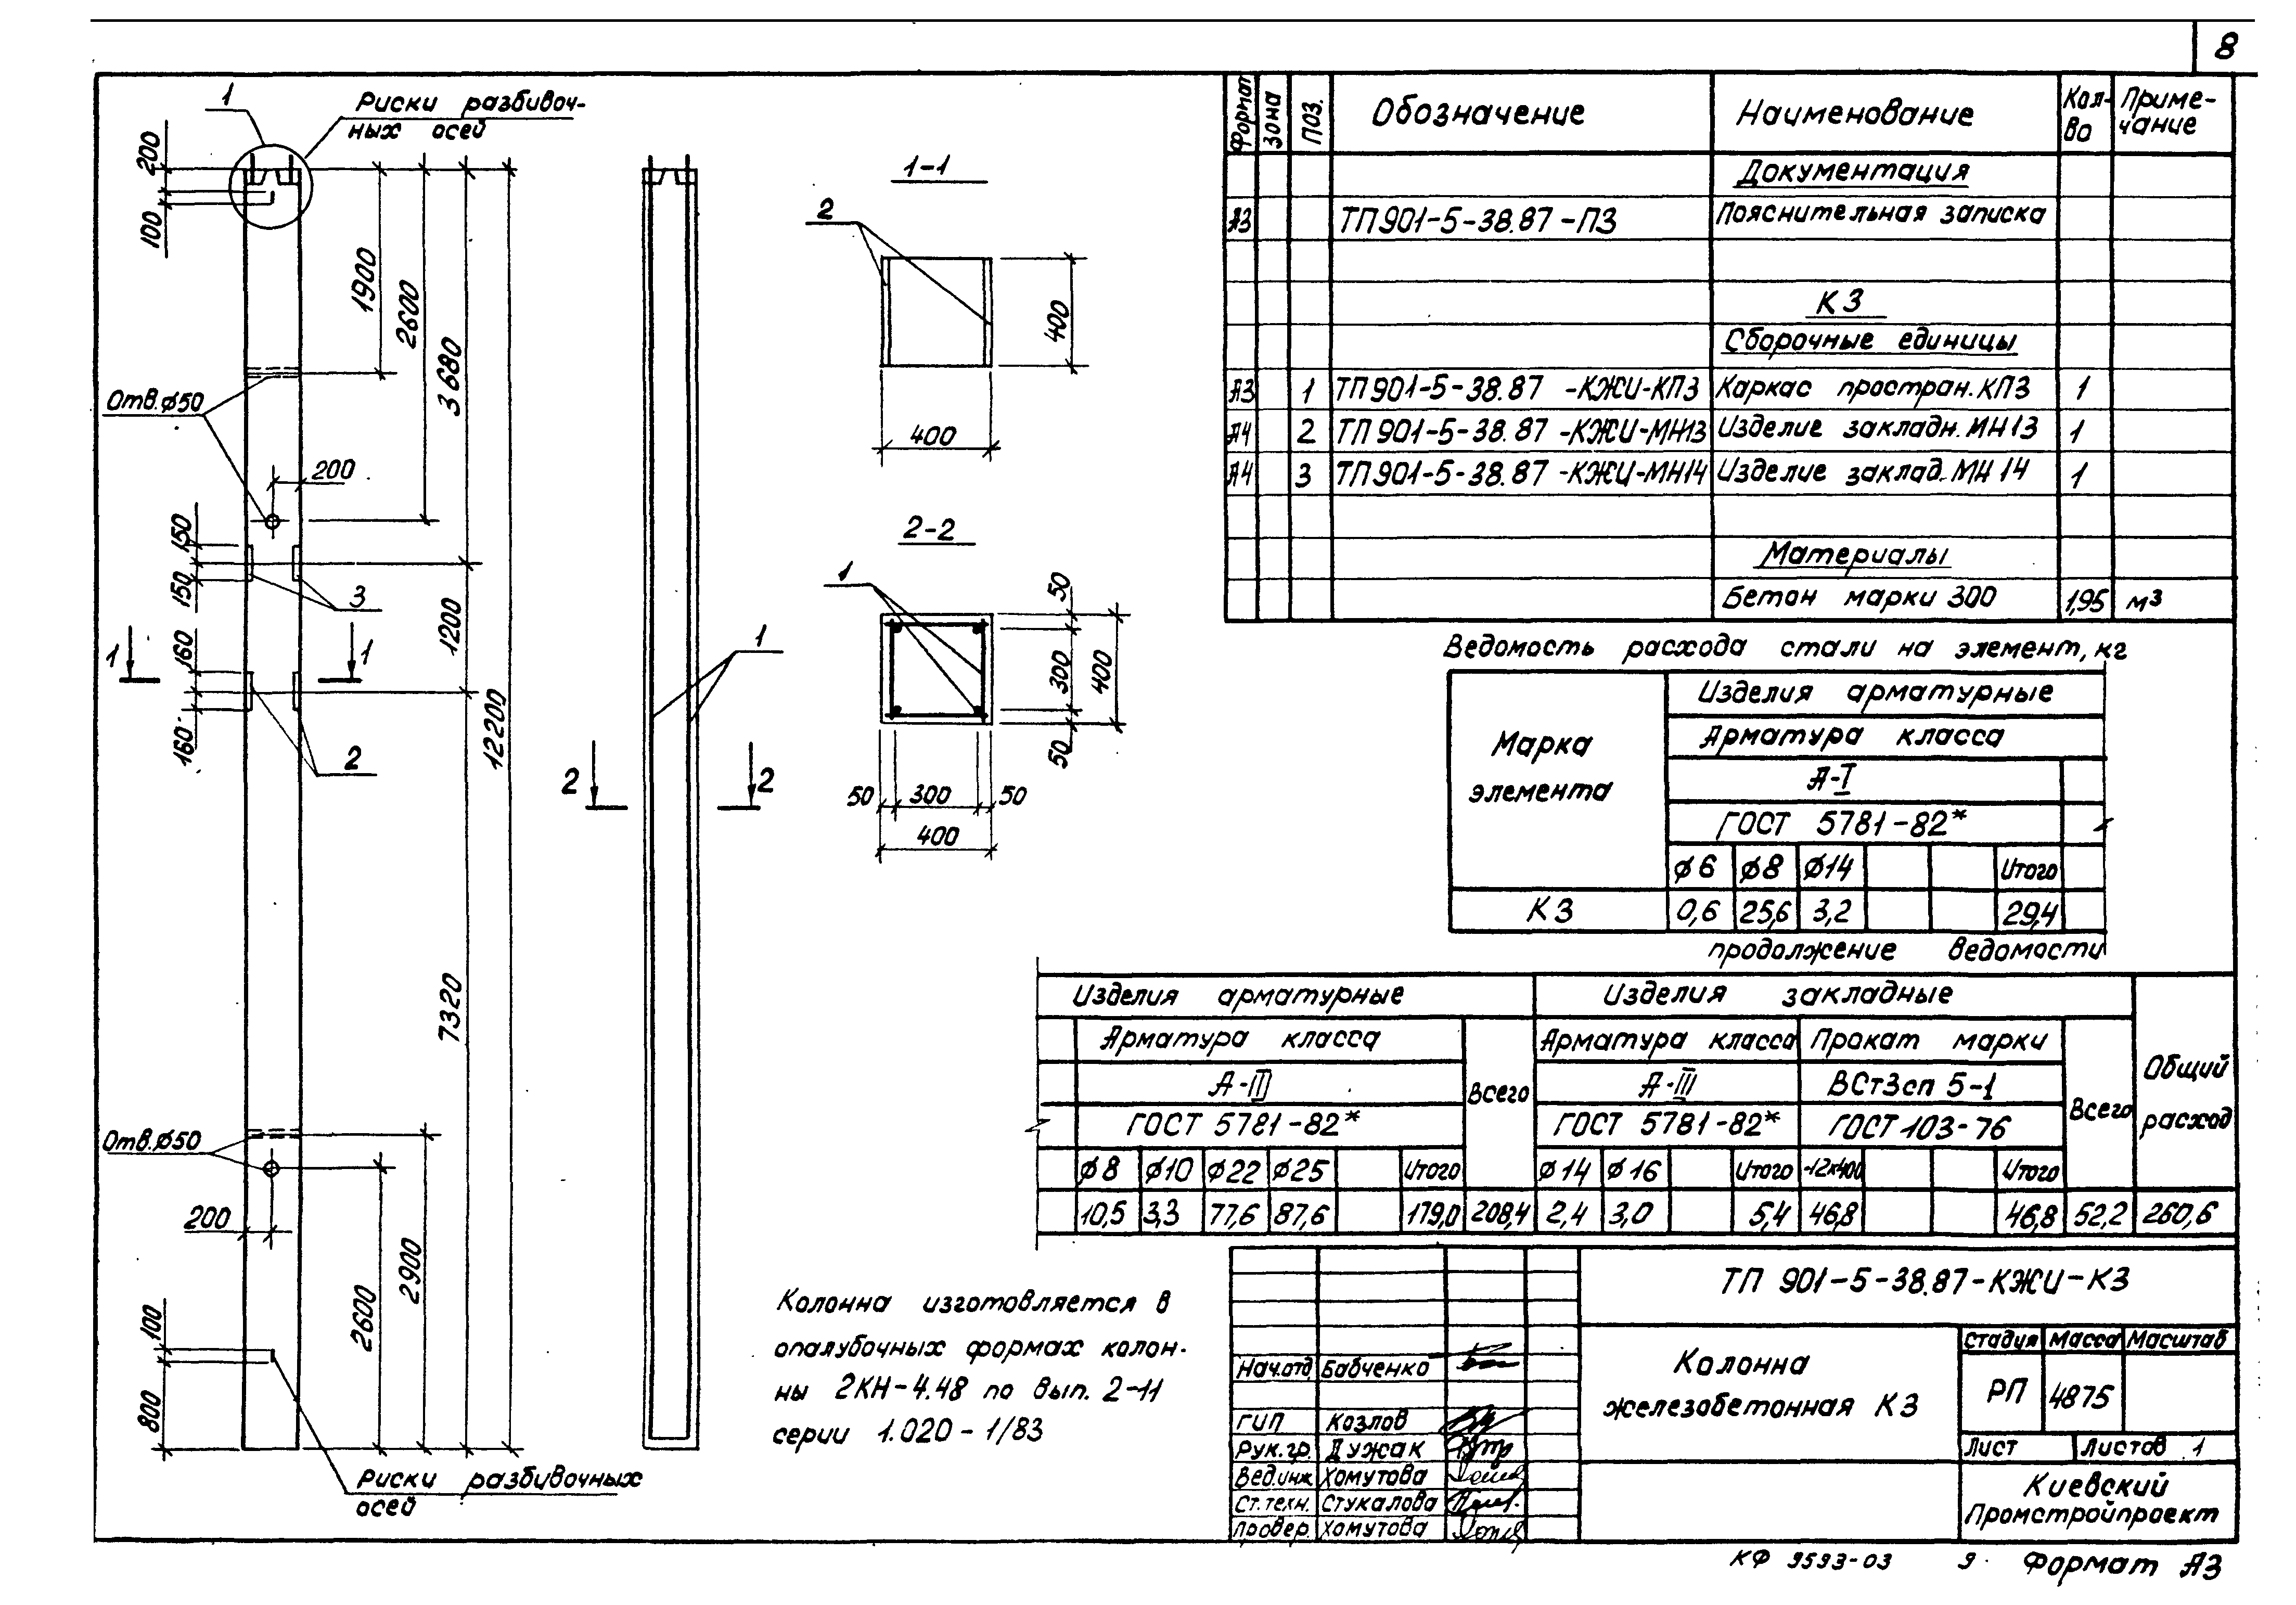 8
1
Риски разбивоч-
ных осей
200
100
1900
2600
3680
12200
Отв.ø50
200
150
150
3
1200
160
160
1
1
2
7320
Отв.ø50
200
2900
2600
100
800
Риски разбивочных
осей
1
2
2
1-1
2
400
400
2-2
1
50
300
400
50
50
300
50
400
Колонна изготовляется в
опалубочных формах колон-
ны 2КН-4.48 по вып. 2-11
серии 1.020-1/83
Формат
Зона
Поз.
Обозначение
Наименование
Кол-во
Приме-чание
Документация
А3 ТП 901-5-38.87-ПЗ Пояснительная записка
К3
Сборочные единицы
А3 1 ТП 901-5-38.87 -КЖИ-КП3 Каркас простран. КП3 1
А4 2 ТП 901-5-38.87 -КЖИ-МН13 Изделие закладн. МН13 1
А4 3 ТП 901-5-38.87 -КЖИ-МН14 Изделие заклад. МН 14 1
Материалы
Бетон марки 300 1,95 м3
Ведомость расхода стали на элемент, кг
Марка
элемента
Изделия арматурные
Арматура класса
А-I
ГОСТ 5781-82*
ø6 ø8 ø14 Итого
К3 0,6 25,6 3,2 29,4
продолжение ведомости
Изделия арматурные Изделия закладные
Общий
расход
Арматура класса Всего Арматура класса Прокат марки Всего
А-III А-III ВСт3сп 5-1
ГОСТ 5781-82* ГОСТ 5781-82* ГОСТ 103-76
ø8 ø10 ø22 ø25 Итого ø14 ø16 Итого -12х400 Итого
10,5 3,3 77,6 87,6 179,0 208,4 2,4 3,0 5,4 46,8 46,8 52,2 260,6
ТП 901-5-38.87-КЖИ-К3
Колонна
железобетонная К3
Стадия Масса Масштаб
РП 4875
Лист Листов 1
Киевский
Промстройпроект
Нач.отд. Бабченко
ГИП Козлов
Рук.гр. Дужак
Вед.инж. Хомутова
Ст.техн. Стукалова
Провер. Хомутова
КФ 9593-03 9 Формат А3